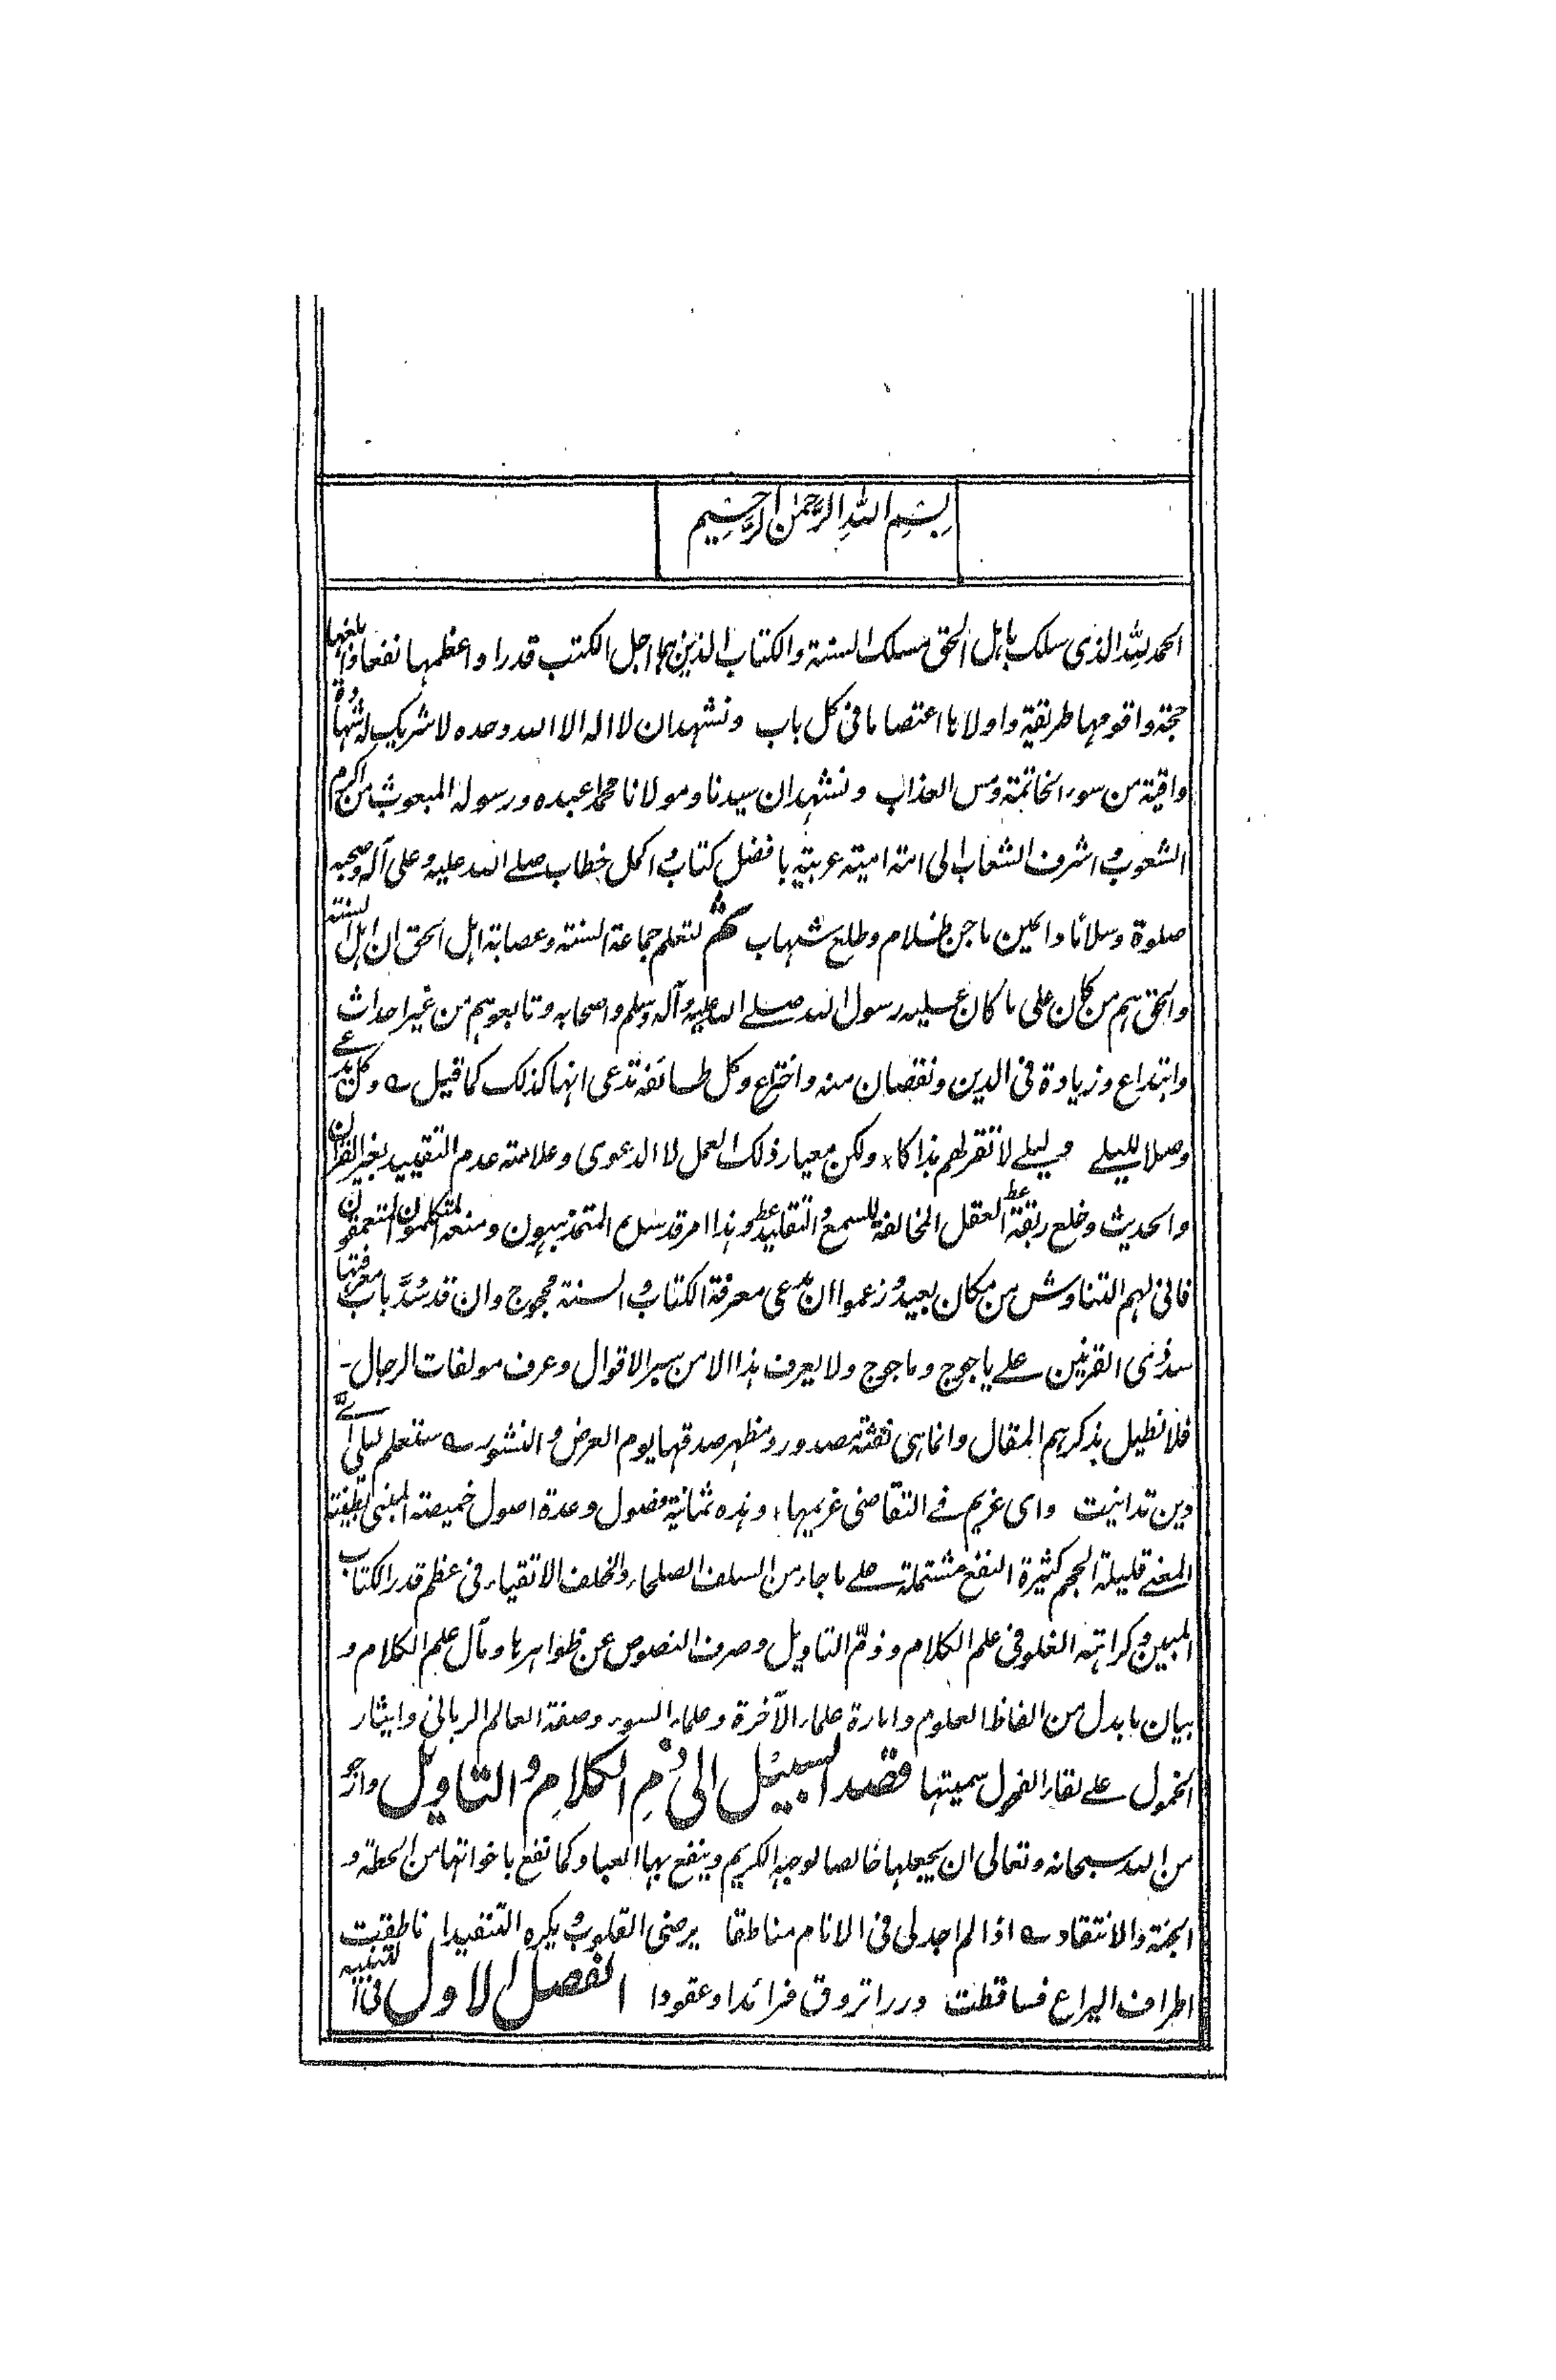 بسم الله الرحمن الرحيم
الحمد لله الذي سلك باهل الحق مسلك السنة والكتاب الذين هما اجل الكتب قدرا واعظمها نفعا وابلغها
حجة واقومها طريقة واولاها اعتصاما في كل باب ونشهد ان لا اله الا الله وحده لا شريك له شهادة
واقية من سوء الخاتمة ومس العذاب ونشهد ان سيدنا ومولانا محمدا عبده ورسوله المبعوث من اكرم
الشعوب واشرف الشعاب الى امة امية عربية بافضل كتاب واكمل خطاب صلى الله عليه وعلى آله وصحبه
صلوة وسلاما دائمين ما جن ظلام وطلع شهاب ثم لتعلم جماعة السنة وعصابة اهل الحق ان اهل السنة
والحق هم من كان على ما كان عليه رسول الله صلى الله عليه وآله وسلم واصحابه وتابعوهم من غير احداث
وابتداع وزيادة في الدين ونقصان منه واختراع وكل طائفة تدعى انها كذلك كما قيل ے وكل يدعى
وصلا لليلى وليلى لا تقر لهم بذاكا ولكن معيار ذلك العمل لا الدعوى وعلامته عدم التقييد بغير القرآن
والحديث وخلع ربقة العقل المخالفة للسمع والتقليد وهذا امر قد سلم المتمذهبون ومنعه المتكلمون المتعمقون
فانى لهم التناوش من مكان بعيد وزعموا ان مدعى معرفة الكتاب والسنة محجوج وان قد سد باب معرفتها
سد ذي القرنين على ياجوج وماجوج ولا يعرف هذا الا من سبر الاقوال وعرف مولفات الرجال -
فلا نطيل بذكرهم المقال وانما هي نفثة مصدور ومظهر صدقها يوم العرض والنشور ے ستعلم ليلى اى
دين تداينت واى غريم في التقاضى غريمها ، وهذه ثمانية فصول وعدة اصول خميصة المبنى بطينة
المعنى قليلة الحجم كثيرة النفع مشتملة على ما جاء من السلف الصلحاء والخلف الاتقياء في عظم قدر الكتاب
المبين وكراهة الغلو في علم الكلام وذم التاويل وصرف النصوص عن ظواهرها ومآل علم الكلام و
بيان ما بدل من الفاظ العلوم وامارة علماء الآخرة وعلماء السوء وصفة العالم الرباني وايثار
الخمول على لقاء الفحول سميتها قصد السبيل الى ذم الكلام والتاويل وارجو
من الله سبحانه وتعالى ان يجعلها خالصا لوجهه الكريم وينفع بها العباد كما نفع باخواتها من الحطة و
الجنة والانتقاد ے اذا لم اجد لي في الانام مناطقا يرضى القلوب ويكره التنفيدا ناطقت
اطراف اليراع فساقطت دررا تروق فرائدا وعقودا الفصل الاول في التنبيه